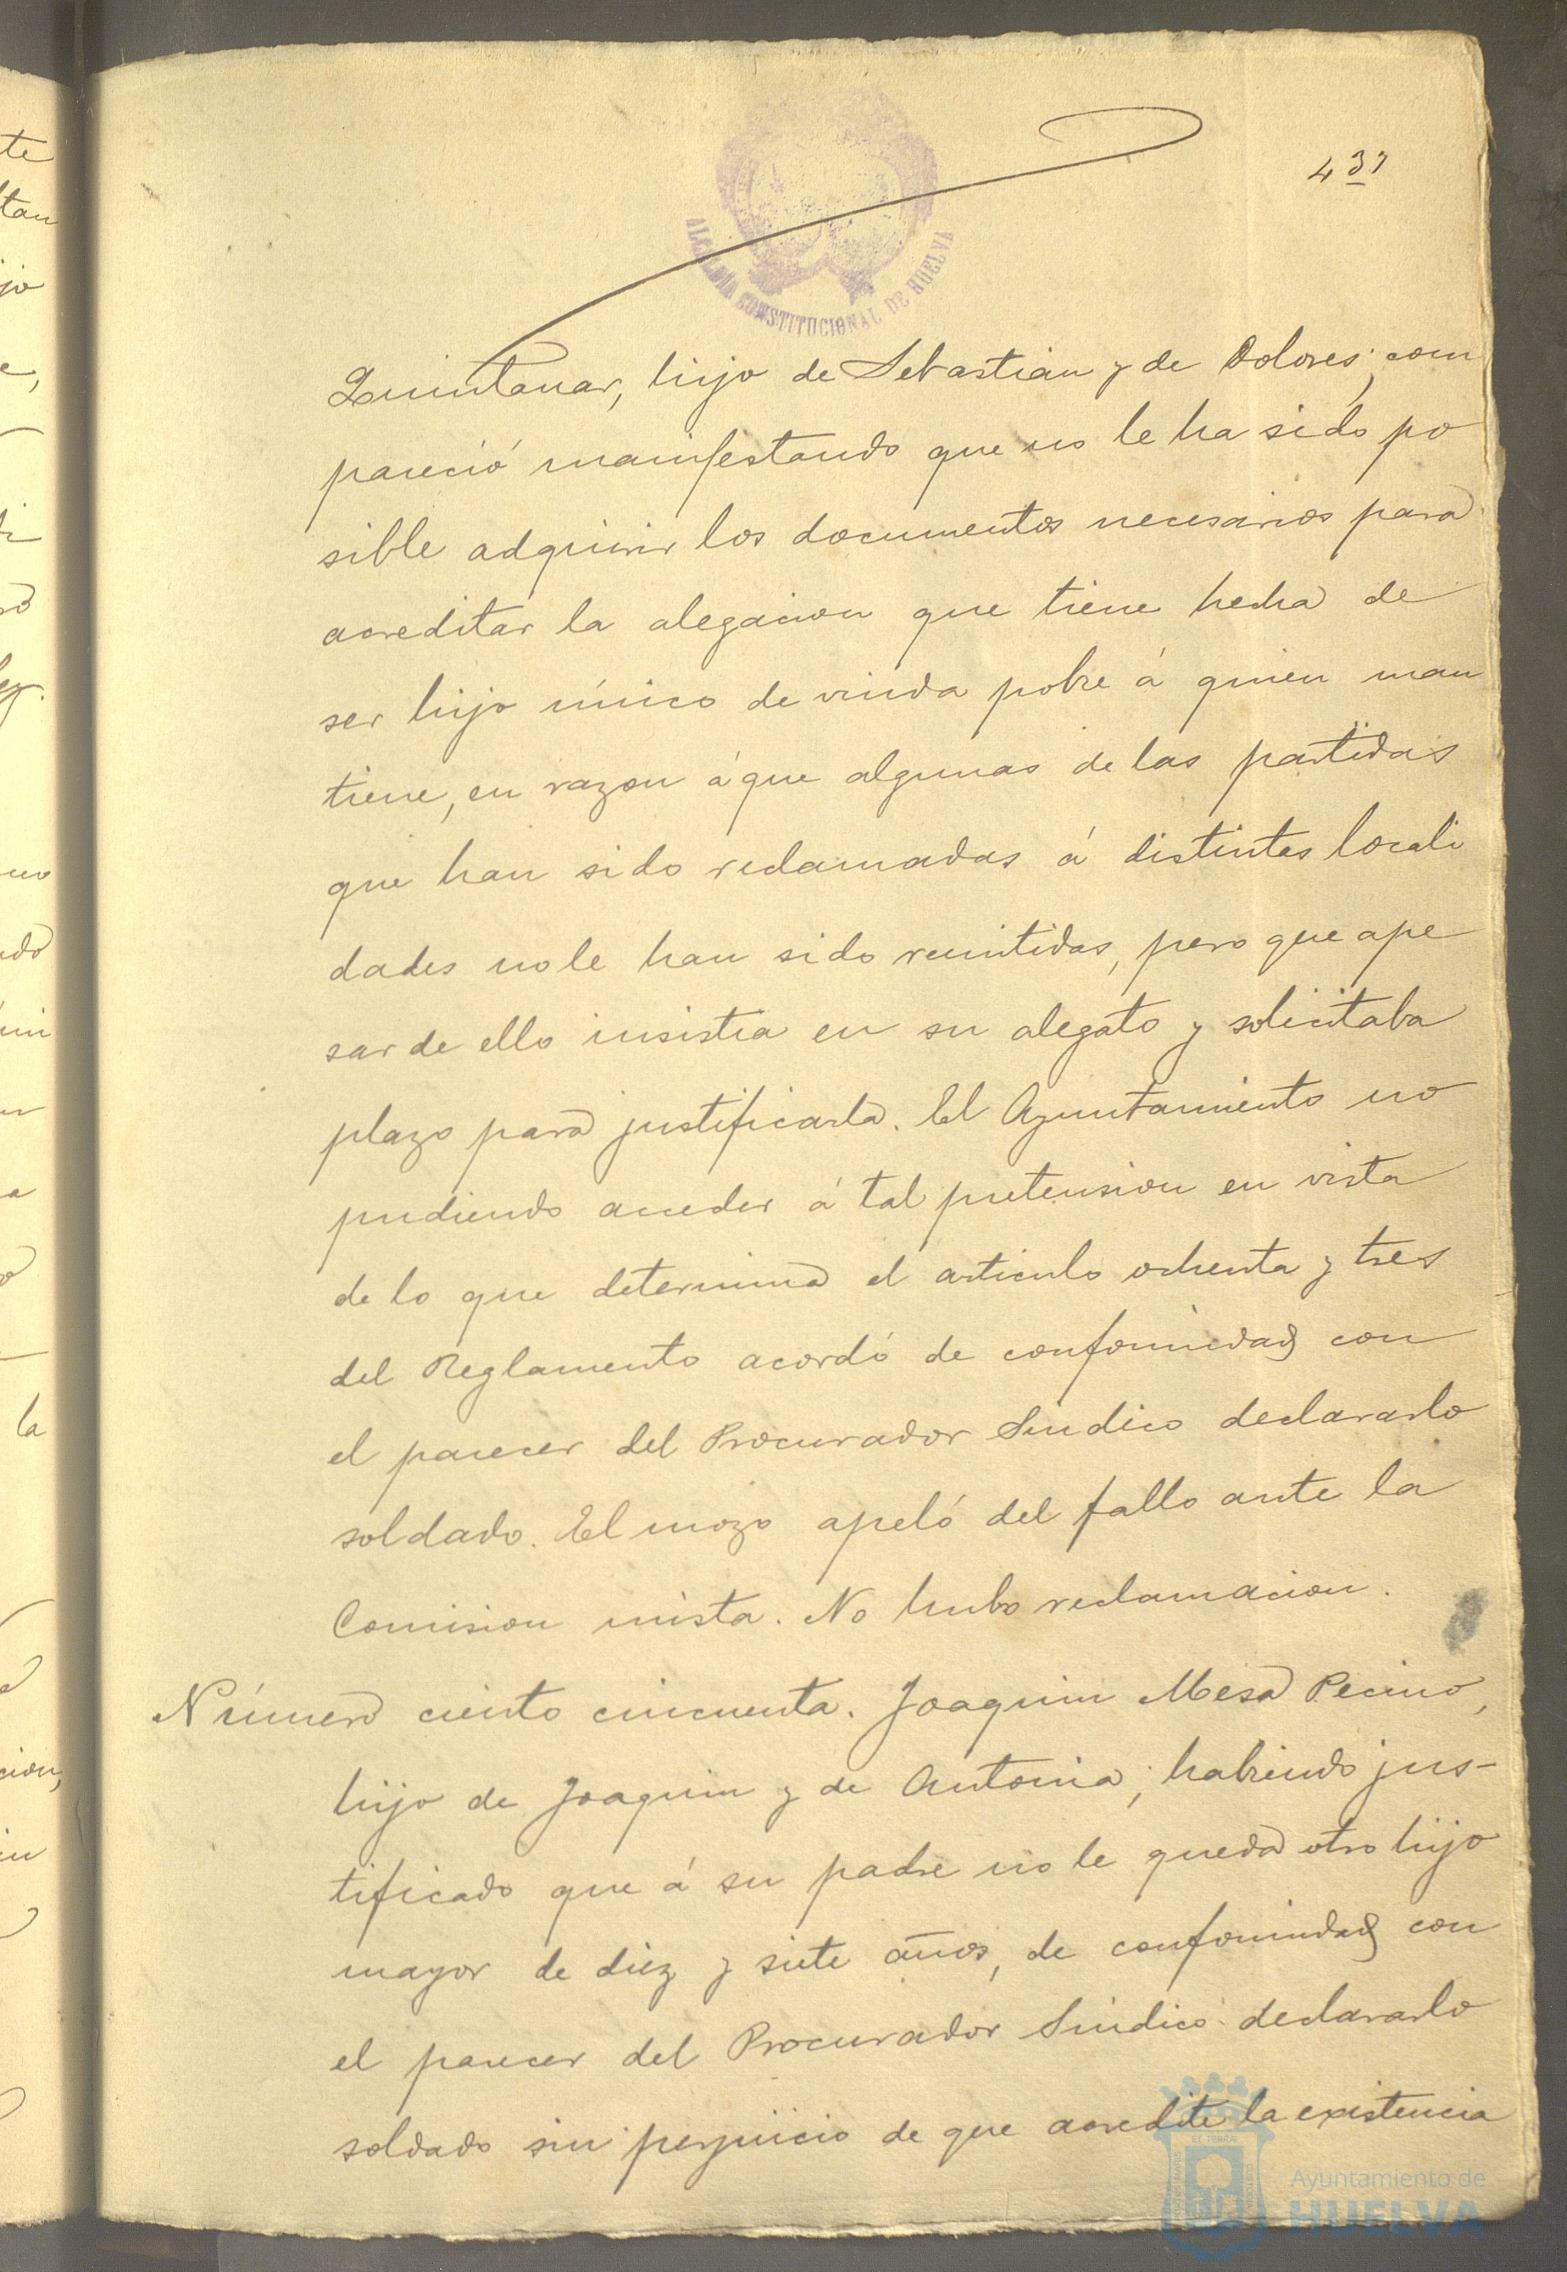 437
ALCALDÍA CONSTITUCIONAL DE HUELVA
Quintanar, hijo de Sebastian y de Dolores; com
pareció manifestando que no le ha sido po
sible adquirir los documentos necesarios para
acreditar la alegacion que tiene hecha de
ser hijo único de viuda pobre á quien man
tiene, en razon á que algunas de las partidas
que han sido reclamadas á distintas locali
dades no le han sido remitidas, pero que ape
sar de ello insistia en su alegato y solicitaba
plazo para justificarla. El Ayuntamiento no
pudiendo acceder á tal pretension en vista
de lo que determina el articulo ochenta y tres
del Reglamento acordó de conformidad con
el parecer del Procurador Sindico declararlo
soldado. El mozo apeló del fallo ante la
Comision mista. No hubo reclamacion.
Número ciento cincuenta. Joaquin Mesa Pecino,
hijo de Joaquin y de Antonia; habiendo jus-
tificado que á su padre no le queda otro hijo
mayor de diez y siete años, de conformidad con
el parecer del Procurador Sindico declararlo
soldado sin perjuicio de que acredite la existencia
Ayuntamiento de
HUELVA